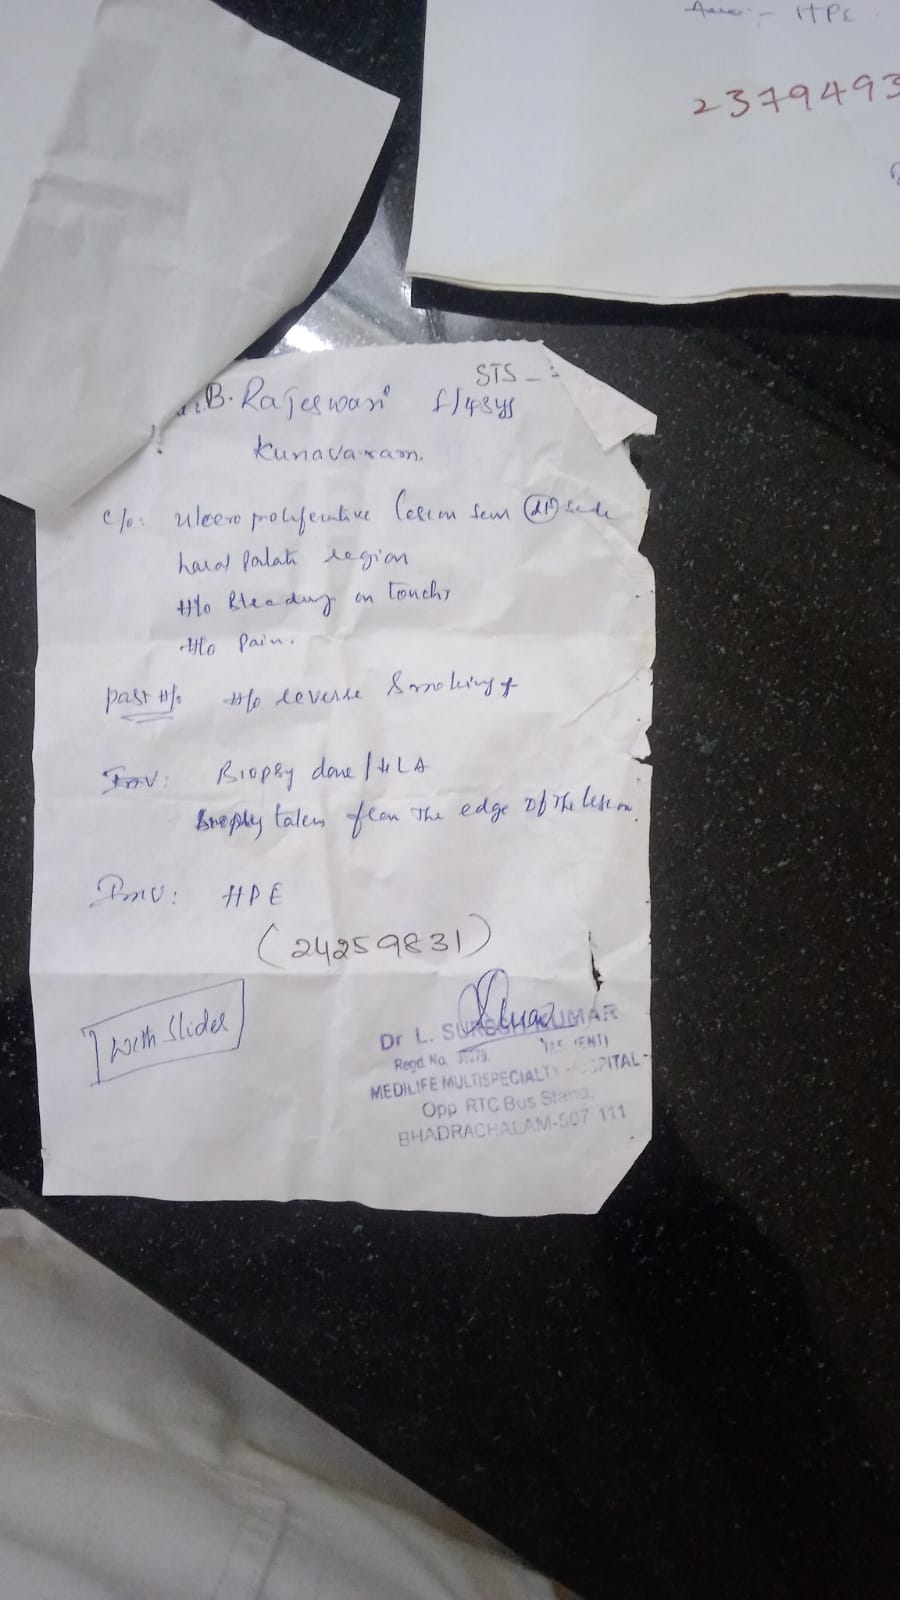 Anv:- HPE
2379493
STS -
B. Rajeswari f/43ys
Kunavaram.
c/o: Ulcero proliferative lesion seen side
hard Palate region
H/o Bleeding on touch+
H/o Pain.
Past H/o H/o reverse Smoking+
Inv: Biopsy done / LA
Biopsy taken from The edge of The lesion.
Inv: HPE
(24259831)
With Slides
Dr L. SURESH KUMAR
Regd. No.
MEDILIFE MULTISPECIALTY HOSPITAL
Opp RTC Bus Stand,
BHADRACHALAM-507 111